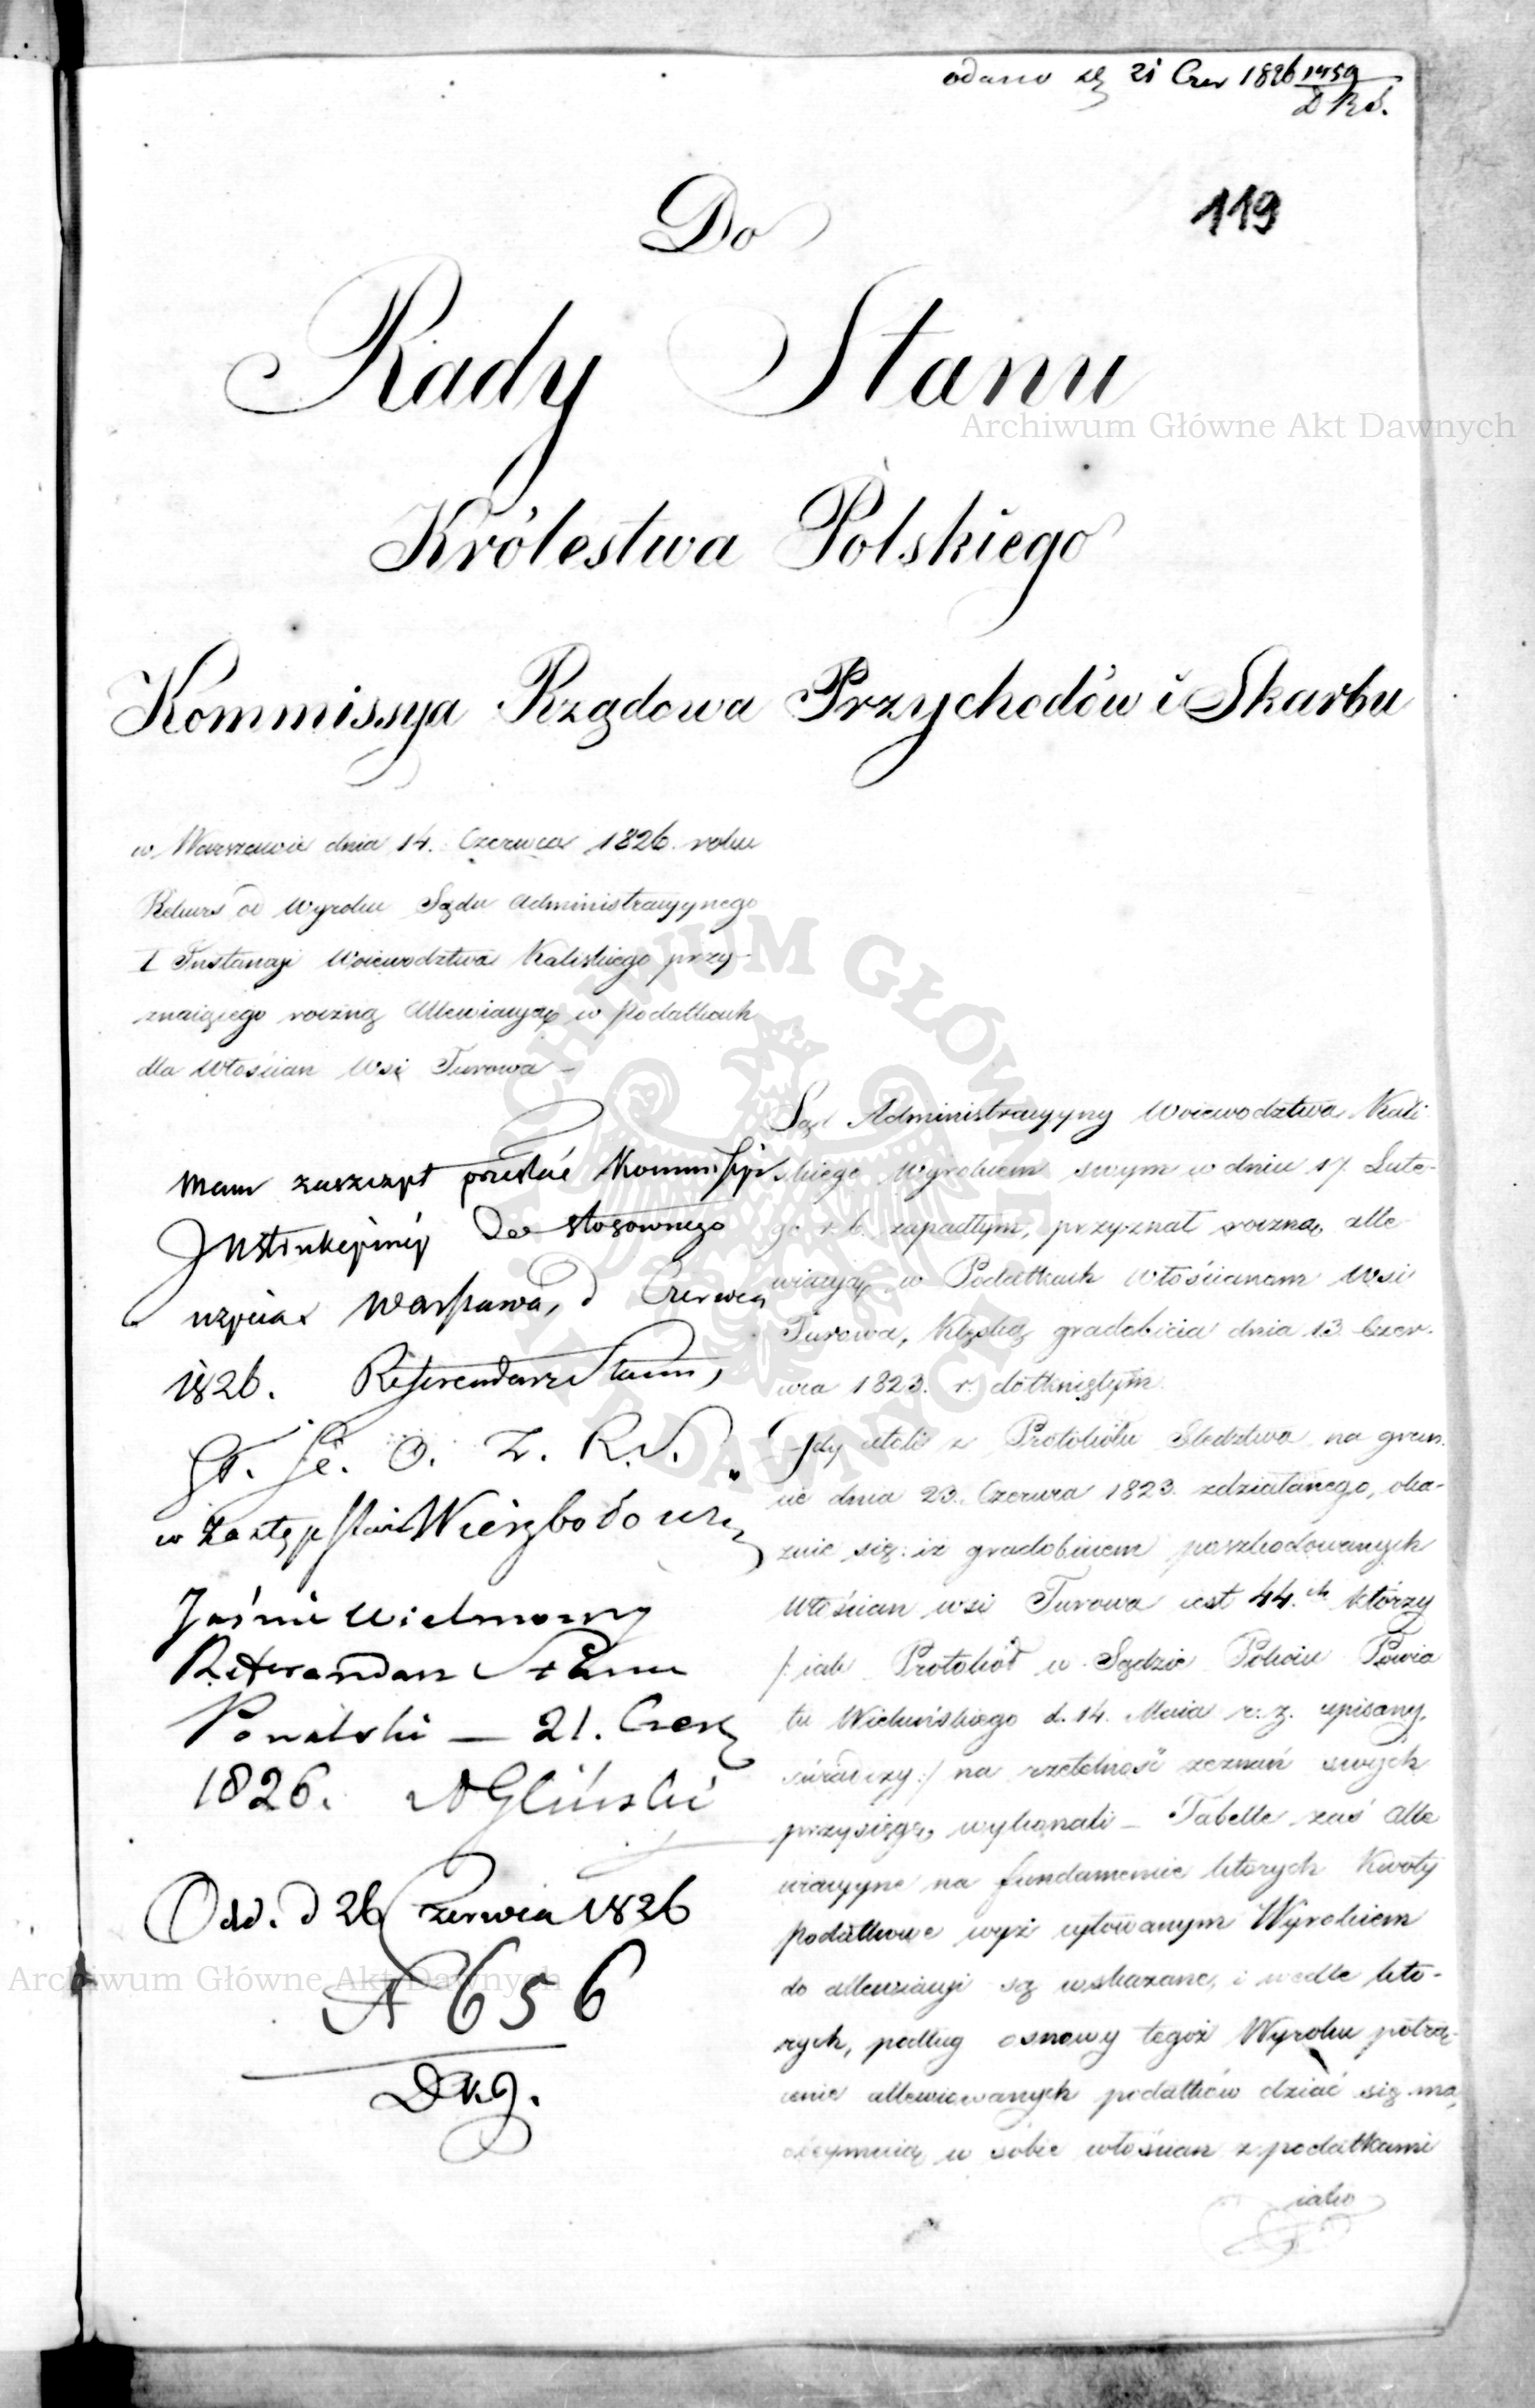 odano d 21 Czer 1826 1459
D R S.
119
Do
Rady Stanu
Królestwa Polskiego
Kommissya Rządowa Przychodów i Skarbu
w Warszawie dnia 14. Czerwca 1826. roku
Rekurs od Wyroku Sądu Administracyynego
I Instancyi Woiewodztwa Kaliskiego przy-
znaiącego roczną Allewiacyą w podatkach
dla Włościan Wsi Turowa –
Mam zaszczyt przesłać Kommissyi
Instrukcyiney do stosownego
użycia Warszawa, d Czerwca
1826. Referendarz Stanu,
w Zastępstwie Wierzbołowicz
Jaśnie Wielmożny
Referendarz Stanu
– 21. Czer
1826. Gliński
Odd. d 26 Czerwca 1826
N 656
Sąd Administracyyny Woiewodztwa Kali
skiego Wyrokiem swym w dniu 17. Lute-
go r. b. zapadłym, przyznał roczną alle
wiacyą w Podatkach Włościanom Wsi
Turowa, Klęską gradobicia dnia 13. Czer-
wca 1823. r. dotkniętym.
Gdy atoli z Protokółu Śledztwa na grun-
cie dnia 23. Czerwca 1823. zdziałanego, oka-
zuie się: iż gradobiciem poszkodowanych
Włościan wsi Turowa iest 44.ch którzy
/: iak Protokół w Sądzie Policyi Powia
tu Wieluńskiego d. 14. Maia r. z. spisany,
świadczy :/ na rzetelność zeznań swych
przysięgę, wykonali – Tabelle zaś Alle
wiacyyne na fundamencie których Kwoty
podatkowe wyż cytowanym Wyrokiem
do allewiacyi są wskazane, i wedle któ-
rych, podług osnowy tegoż Wyroku potrą-
cenie allewiowanych podatków dziać się ma,
obeymuią w sobie włościan z podatkami
iako
Archiwum Główne Akt Dawnych
Archiwum Główne Akt Dawnych
ARCHIWUM GŁÓWNE AKT DAWNYCH